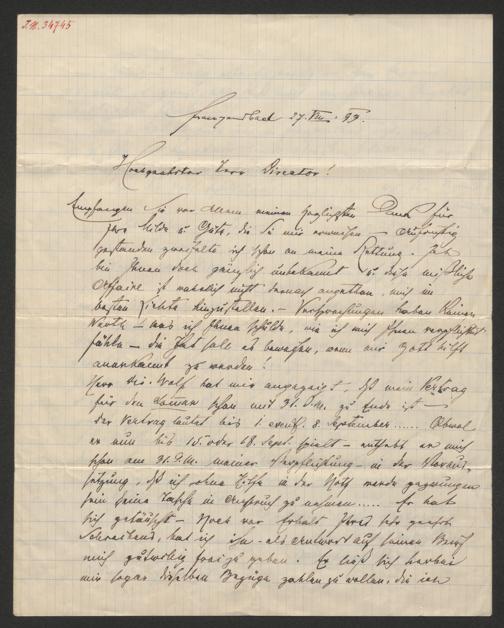 I.N. 34745
Franzensbad 27. VIII. 99.
Hochgeehrter Herr Director!
Empfangen Sie vor Allem meinen herzlichsten Dank für
Ihre Milde u Güte, die Sie mir erweisen – Aufrichtig
gestanden zweifelte ich schon an meine Rettung. Ich
bin Ihnen doch gänzlich unbekannt u diese mißliche
Affaire ist wahrlich nicht darnach angethan, mich im
besten Lichte hinzustellen. – Versprechungen haben keinen
Werth – was ich Ihnen schulde, wie ich mich Ihnen verpflichtet
fühle – die That soll es beweisen, wenn mir Gott hilft
anerkannt zu werden!
Herr Dir. Wolf hat mir angezeigt – daß mein Vertrag
für den Sommer schon mit 31. d.M. zu Ende ist –
der Vertrag lautet bis 1. event. 8. September...... Obwol
er nun bis 15. oder 18. Sept. spielt – enthebt er mich
schon am 31. d.M. meiner Verpflichtung – in der Voraus-
setzung, daß ich ohne Hilfe in der Noth werde gezwungen
sein seine Tasche in Anspruch zu nehmen..... Er hat
sich getäuscht – Noch vor Erhalt Ihres sehr geehrt
Schreibens, hat ich ihn – als Antwort auf seinen Brief
mich gutwillig freizugeben. Er ließ sich herbei
mir sogar dieselben Bezüge zahlen zu wollen, die ich